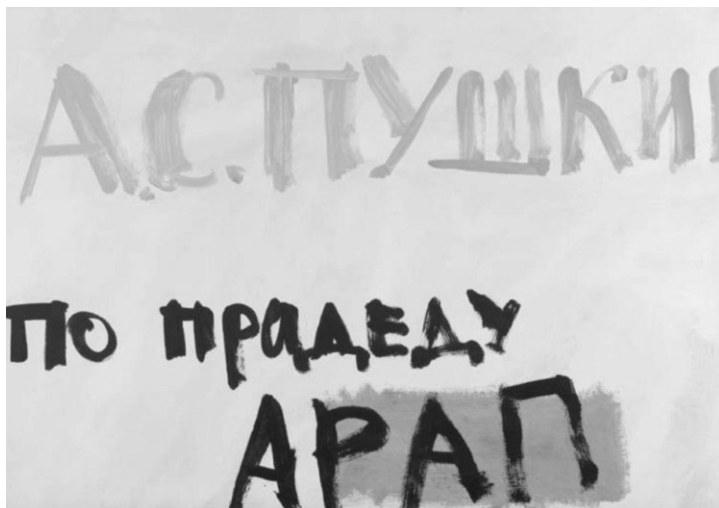 А.С.ПУШКИ
ПО ПРАДЕДУ
АРАП